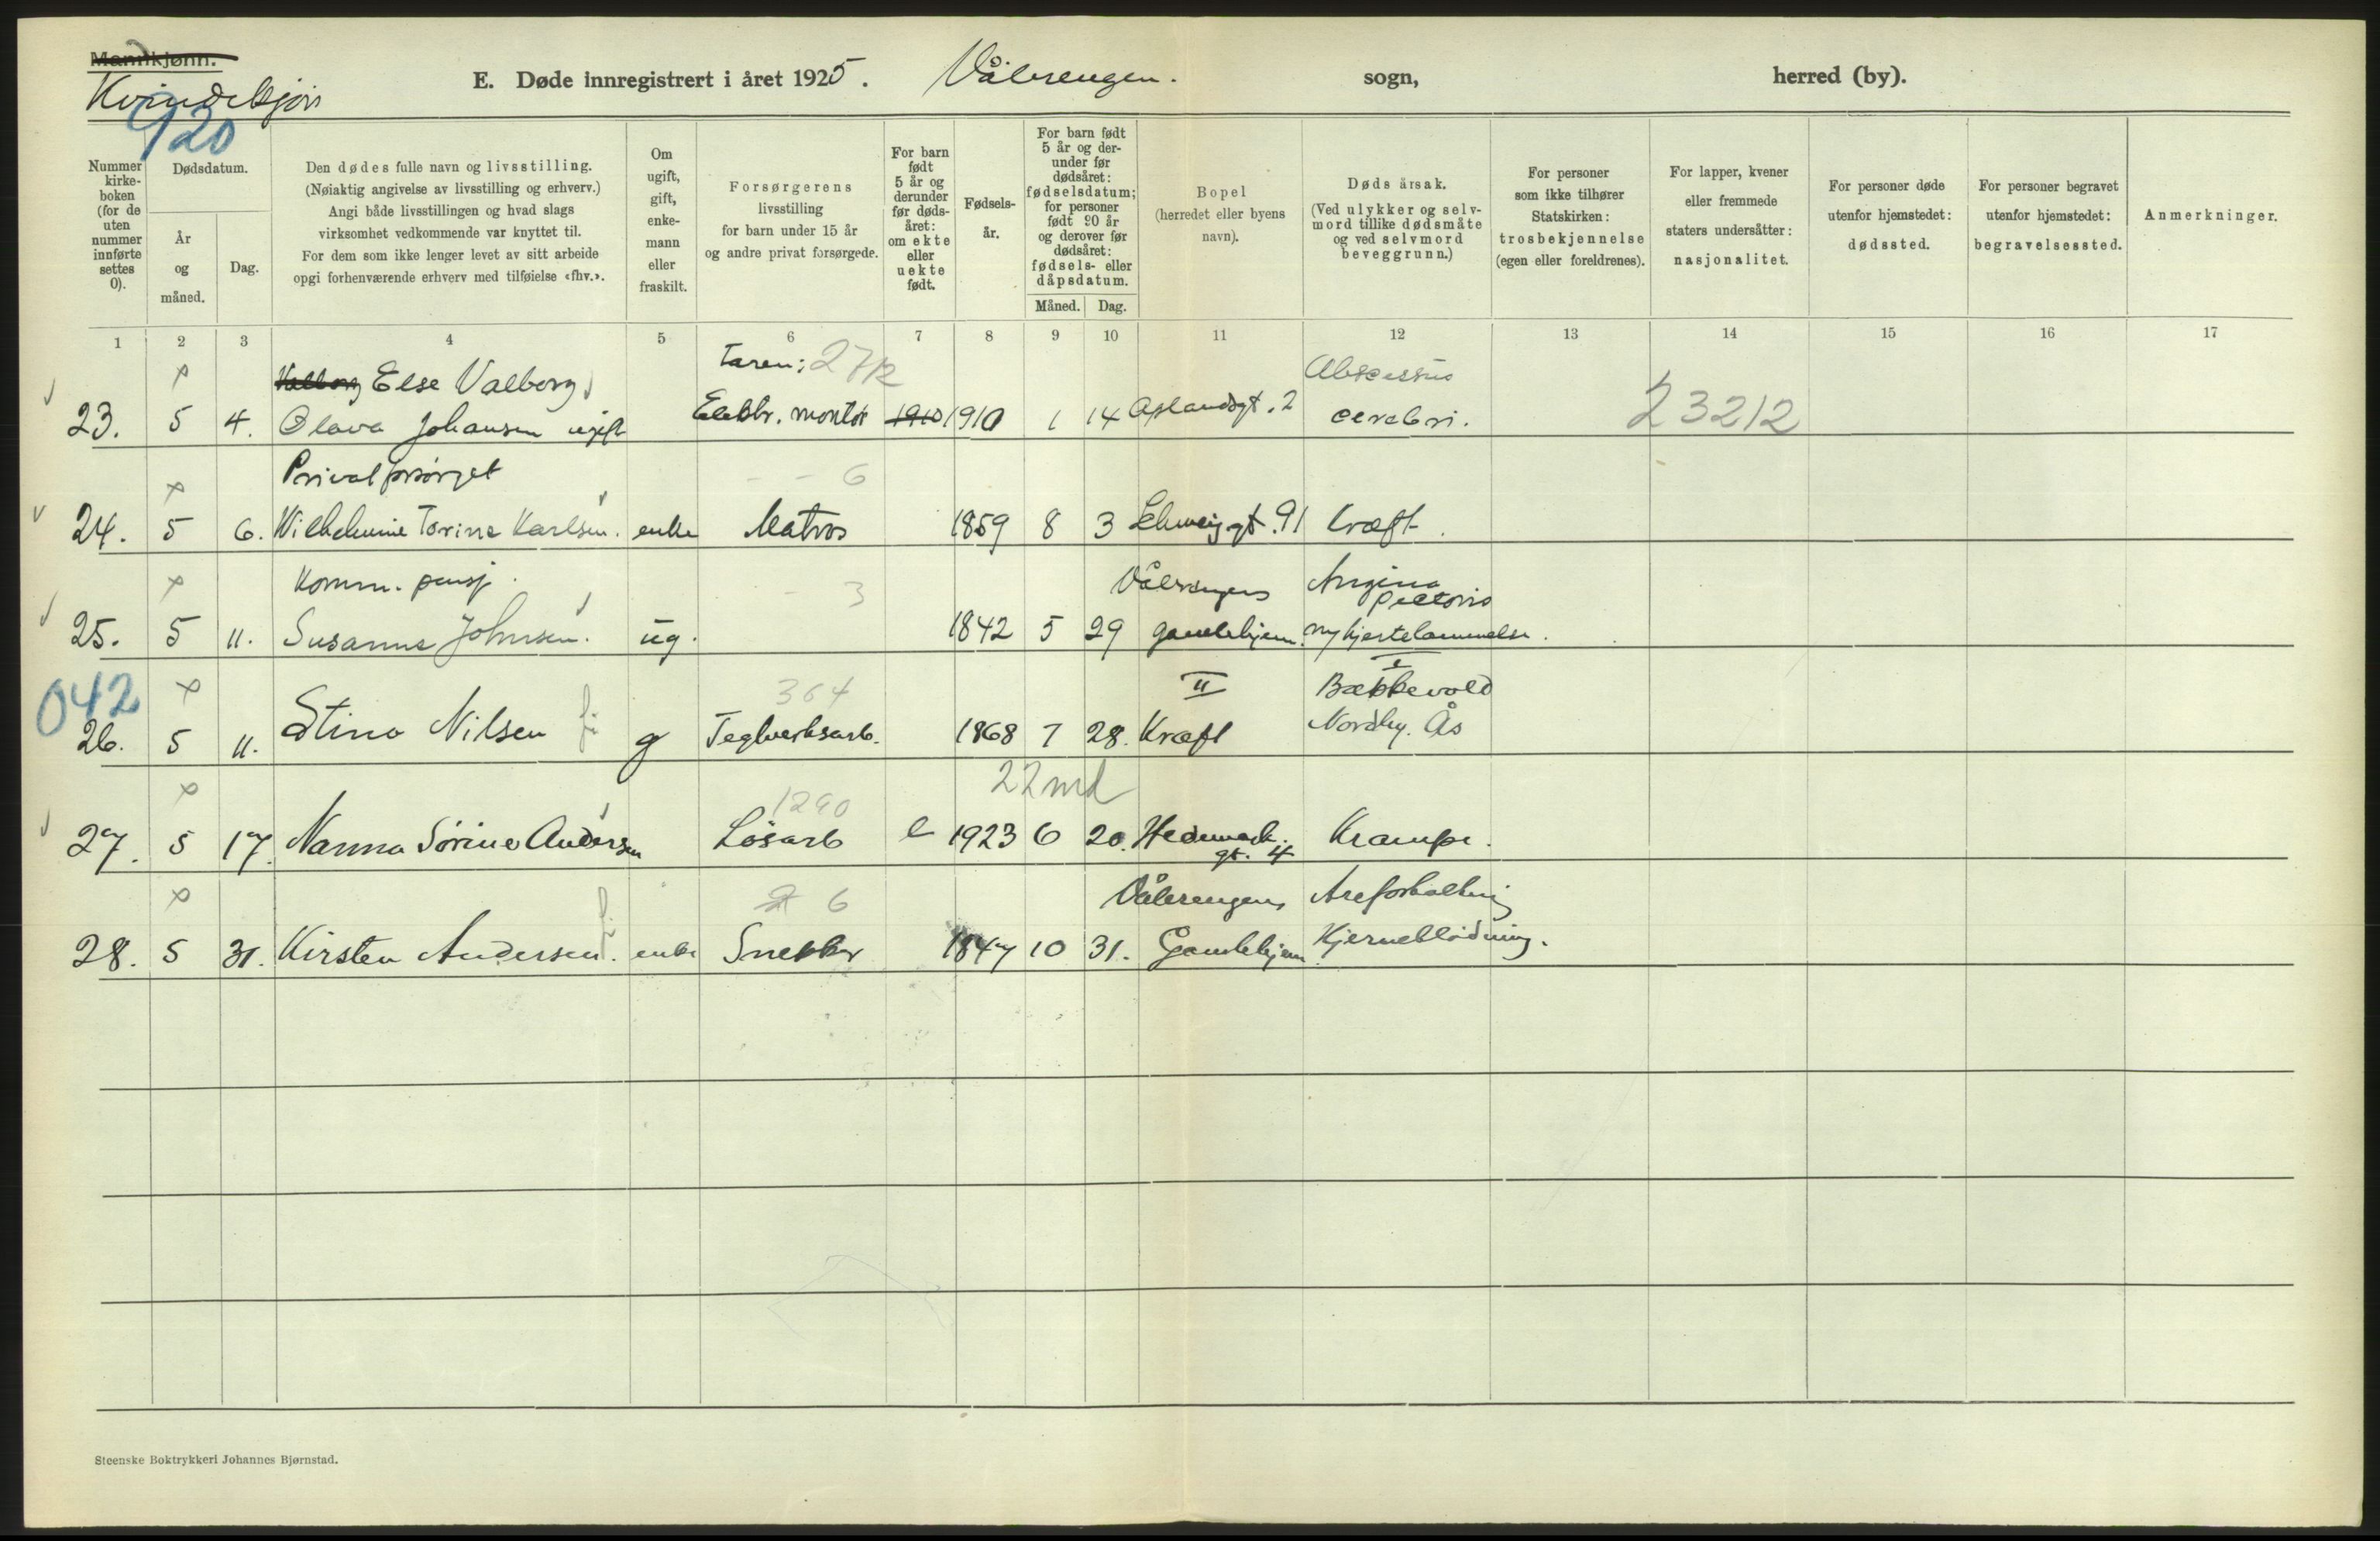 Mannkjønn.
Kvindekjøn
920
E. Døde innregistrert i året 1925. Vålerengen. sogn, herred (by).
Nummer kirke-boken (for de uten nummer innførte settes 0).
Dødsdatum.
År og måned.
Dag.
Den dødes fulle navn og livsstilling.
(Nøiaktig angivelse av livsstilling og erhverv.)
Angi både livsstillingen og hvad slags
virksomhet vedkommende var knyttet til.
For dem som ikke lenger levet av sitt arbeide
opgi forhenværende erhverv med tilføielse «fhv.».
Om ugift, gift, enke-mann eller fraskilt.
Forsørgerens
livsstilling
for barn under 15 år
og andre privat forsørgede.
For barn født 5 år og derunder før døds-året: om ekte eller uekte født.
Fødsels-år.
For barn født 5 år og der-under før dødsåret: fødselsdatum; for personer født 90 år og derover før dødsåret: fødsels- eller dåpsdatum.
Måned. Dag.
Bopel
(herredet eller byens
navn).
Døds årsak.
(Ved ulykker og selv-
mord tillike dødsmåte
og ved selvmord
beveggrunn.)
For personer
som ikke tilhører
Statskirken:
trosbekjennelse
(egen eller foreldrenes).
For lapper, kvener
eller fremmede
staters undersåtter:
nasjonalitet.
For personer døde
utenfor hjemstedet:
dødssted.
For personer begravet
utenfor hjemstedet:
begravelsessted.
Anmerkninger.
1 2 3 4 5 6 7 8 9 10 11 12 13 14 15 16 17
Valborg Else Valborg Faren: Abscessus
23. 5 4. Olava Johansen ugift Elektr. montør 1910 1910 1 14 Aslandsgt. 2 cerebri. 23212
Privat forsørget 6
24. 5 6. Wilhelmine Torine Karlsen. enke Matros 1859 8 3 Schweigsgt. 91 kræft.
Komm. pensj. 3 Vålerengens Angina pectoris
25. 5 11. Susanne Johnsen. ug. 1842 5 29 gamlehjem. og hjertelammelse.
042 364 II I Bækkevold
26. 5 11. Stina Nilsen g Teglverksarb. 1868 7 28. Kræft Nordby. Ås
1290 22 md
27. 5 17. Nanna Sørine Andersen Løsarb e 1923 6 20. Hedemark. gt. 4 Krampe.
6 Vålerengens Areforkalkning
28. 5 31. Kirsten Andersen. enke Snekker 1847 10 31. Gamlehjem Hjerneblødning.
Steenske Boktrykkeri Johannes Bjørnstad.